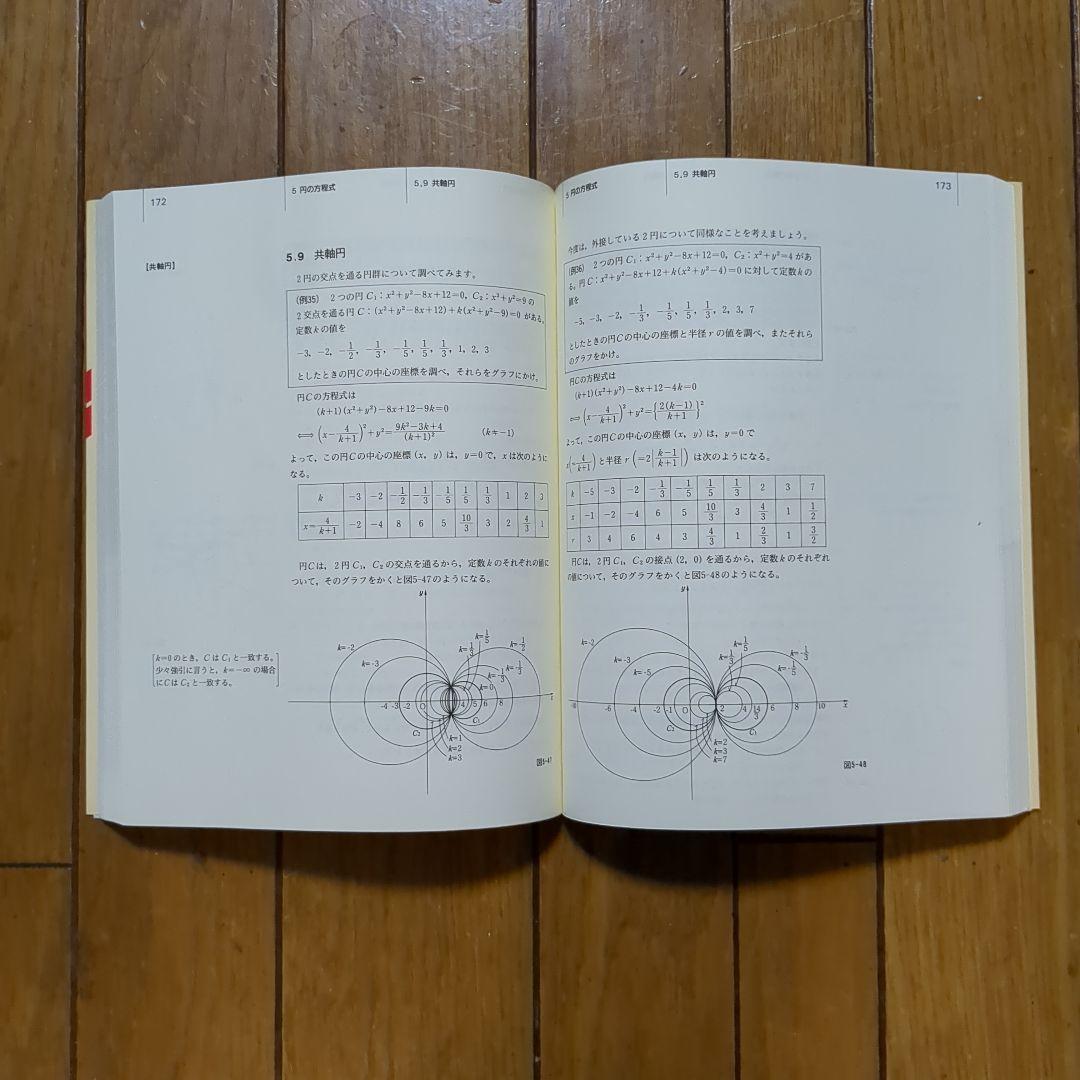 172
5 円の方程式
5.9 共軸円
[共軸円]
5.9 共軸円
2円の交点を通る円群について調べてみます。
(例35) 2つの円 C₁：x²+y²−8x+12=0, C₂：x²+y²=9 の
2交点を通る円 C：(x²+y²−8x+12)+k(x²+y²−9)=0 がある。
定数 k の値を
−3, −2, −1/2, −1/3, −1/5, 1/5, 1/3, 1, 2, 3
としたときの円Cの中心の座標を調べ，それらをグラフにかけ。
円Cの方程式は
(k+1)(x²+y²)−8x+12−9k=0
⟺ (x−4/(k+1))²+y²=(9k²−3k+4)/(k+1)² (k≠−1)
よって，この円Cの中心の座標 (x, y) は，y=0で，xは次のように
なる。
k −3 −2 −1/2 −1/3 −1/5 1/5 1/3 1 2 3
x=4/(k+1) −2 −4 8 6 5 10/3 3 2 4/3 1
円Cは，2円 C₁, C₂ の交点を通るから，定数 k のそれぞれの値に
ついて，そのグラフをかくと図5-47のようになる。
[k=0 のとき，C は C₁ と一致する。
少々強引に言うと，k=−∞ の場合
にCは C₂ と一致する。]
y
k=-2
k=-3
k=1/3
k=1/5
k=-1/2
k=-1/3
k=0
-4 -3 -2 O 4 5 6 8
C₂
C₁
k=1
k=2
k=3
図5-47
5 円の方程式
5.9 共軸円
173
今度は，外接している2円について同様なことを考えましょう。
(例36) 2つの円 C₁：x²+y²−8x+12=0, C₂：x²+y²=4 があ
る。円 C：x²+y²−8x+12+k(x²+y²−4)=0 に対して定数 k の
値を
−5, −3, −2, −1/3, −1/5, 1/5, 1/3, 2, 3, 7
としたときの円Cの中心の座標と半径 r の値を調べ，またそれら
のグラフをかけ。
円Cの方程式は
(k+1)(x²+y²)−8x+12−4k=0
⟺ (x−4/(k+1))²+y²={2(k−1)/(k+1)}²
よって，この円Cの中心の座標 (x, y) は，y=0 で
x(=4/(k+1)) と半径 r (=2|(k−1)/(k+1)|) は次のようになる。
k −5 −3 −2 −1/3 −1/5 1/5 1/3 2 3 7
x −1 −2 −4 6 5 10/3 3 4/3 1 1/2
r 3 4 6 4 3 4/3 1 2/3 1 3/2
円Cは，2円 C₁, C₂ の接点 (2, 0) を通るから，定数 k のそれぞれ
の値について，そのグラフをかくと図5-48のようになる。
y
k=-2
k=-3
k=-5
k=1/3
k=1/5
k=-1/3
k=-1/5
-8 -6 -4 -2 -1 O 2 4 14/3 6 8 10 x
C₂
C₁
k=2
k=3
k=7
図5-48